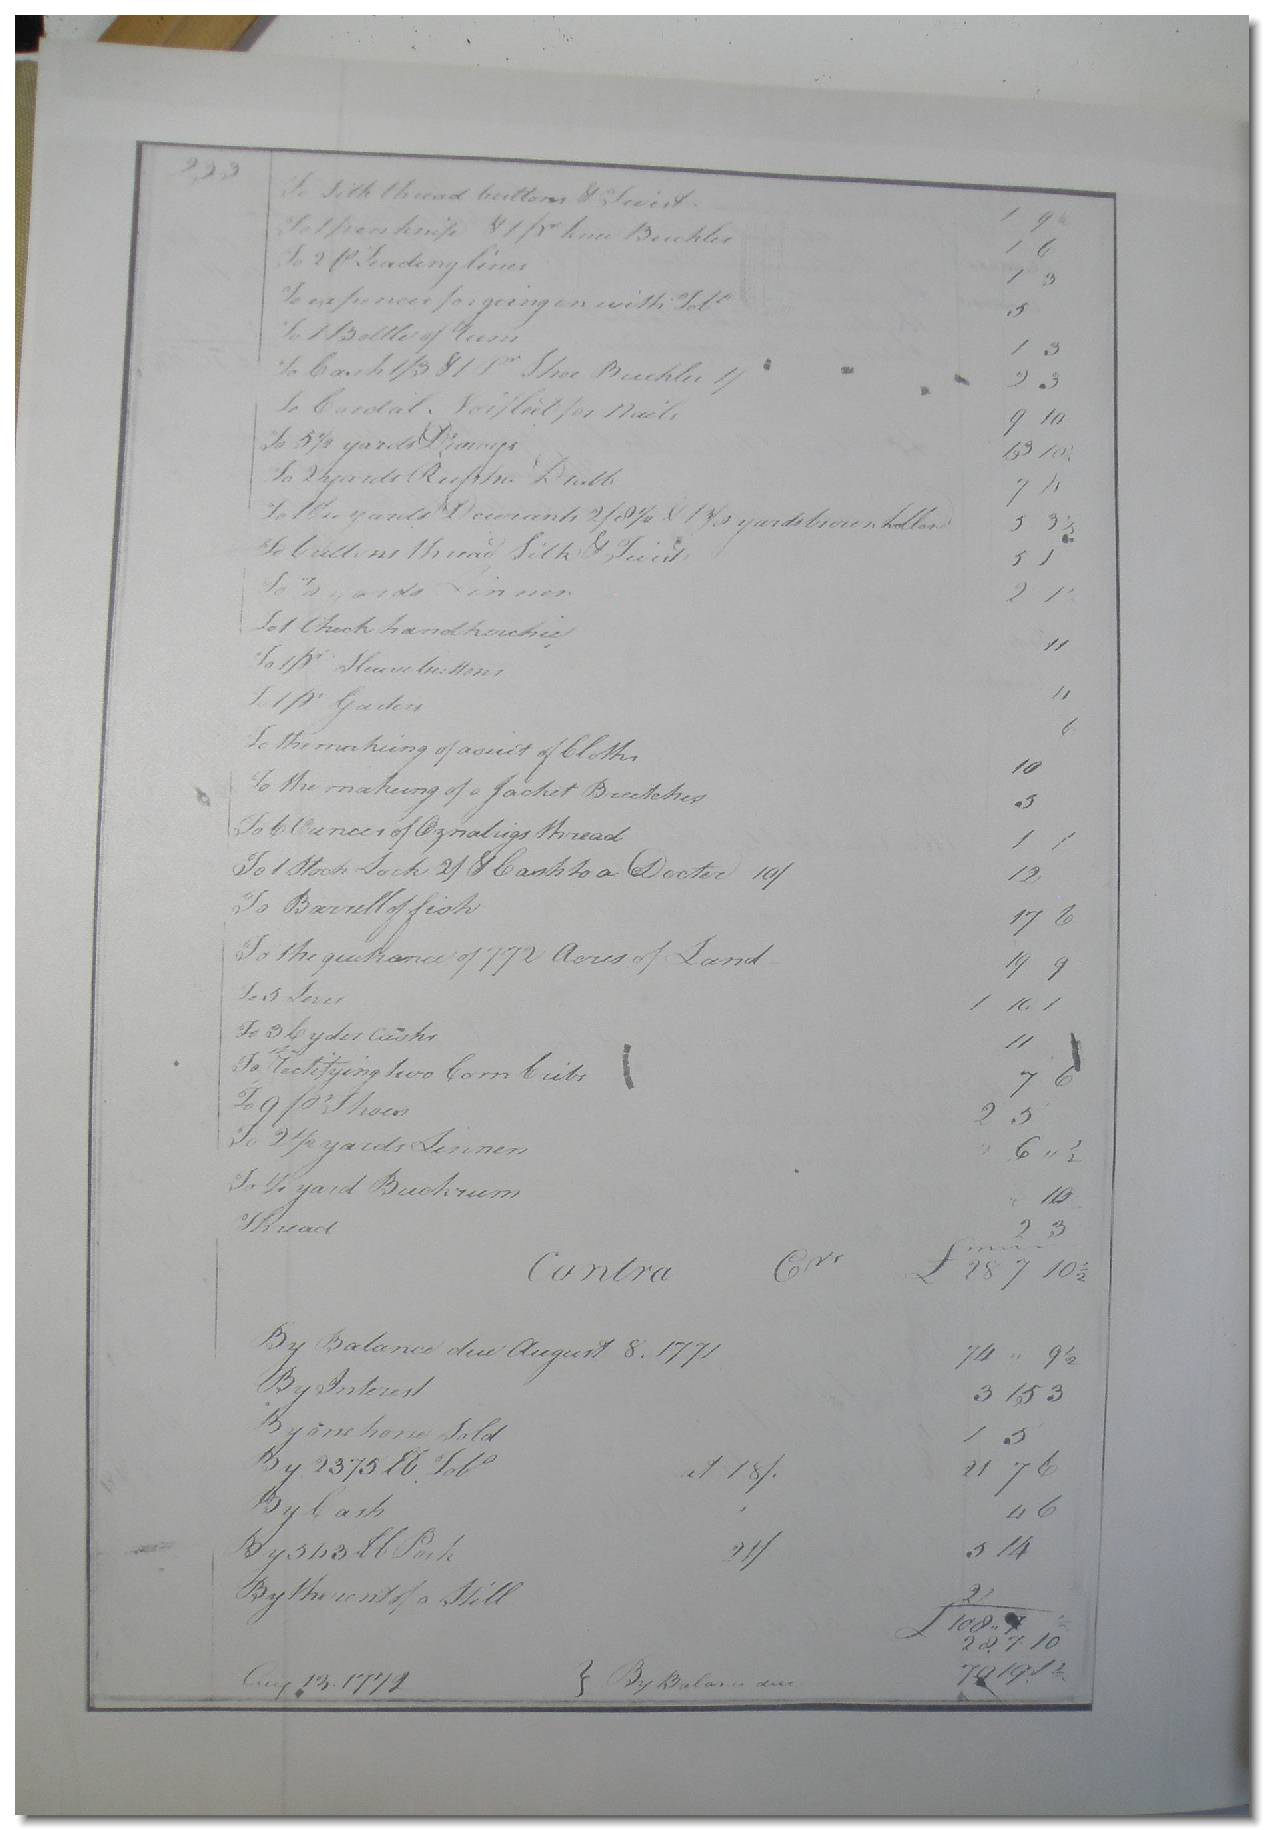 233
To Silk thread buttons & Twist 1 9
To 1 penknife & 1 pr knee Buckles 1 6
To 2 pr Leading lines 1 3
To expences for going on with Tobo 5
To 1 Bottle of Rum 1 3
To Cash 1/3 & 1 Pr Shoe Buckles 1/ 2 3
To Cordial for Nails 9 10
To 5 1/2 yards 13 10
To 2 yards Drabb 7 4
To yards Durants & yards brown hollan 5 3½
To buttons thread Silk & Twist 5 1
To yards Linnen 2 1
To 1 Check handkerchief 11
To 1 pr Sleeve buttons 4
To 1 pr Garters 6
To the making of a suit of Cloths 10
To the making of a Jacket Breetches 5
To 6 Ounces of Oznabigs thread 1 1
To 1 Stock Lock 2/ & Cash to a Docter 10/ 12
To Barrell of fish 17 6
To the quitrance of 772 Acres of Land 19 9
To 5 1 16 1
To 3 Cyder casks 11
To Rectifying two Corn Cribs 7 6
To 9 pr Shoes 2 5
To 2 1/2 yards Linnen " 6 " ½
To yard Buckrum " 10
Thread 2 3
Contra Cr £ 28 7 10½
By Balance due August 8. 1771 74 " 9½
By Interest 3 15 3
By one horse Sold 1 5
By 2375 lb Tobo at 18/. 21 7 6
By Cash 4 6
By 543 lb Pork 21/ 5 14
By the rent of a Still 2
£ 108 " 7
28 7 10
Aug 13. 1772 } By Balance due 79 19